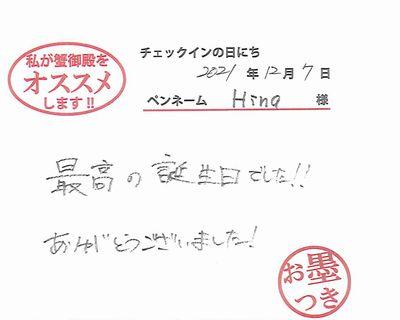 私が蟹御殿を
オススメ
します!!
チェックインの日にち
2021 年 12 月 7 日
ペンネーム Hina 様
最高の誕生日でした!!
ありがとうございました!
お墨
つき